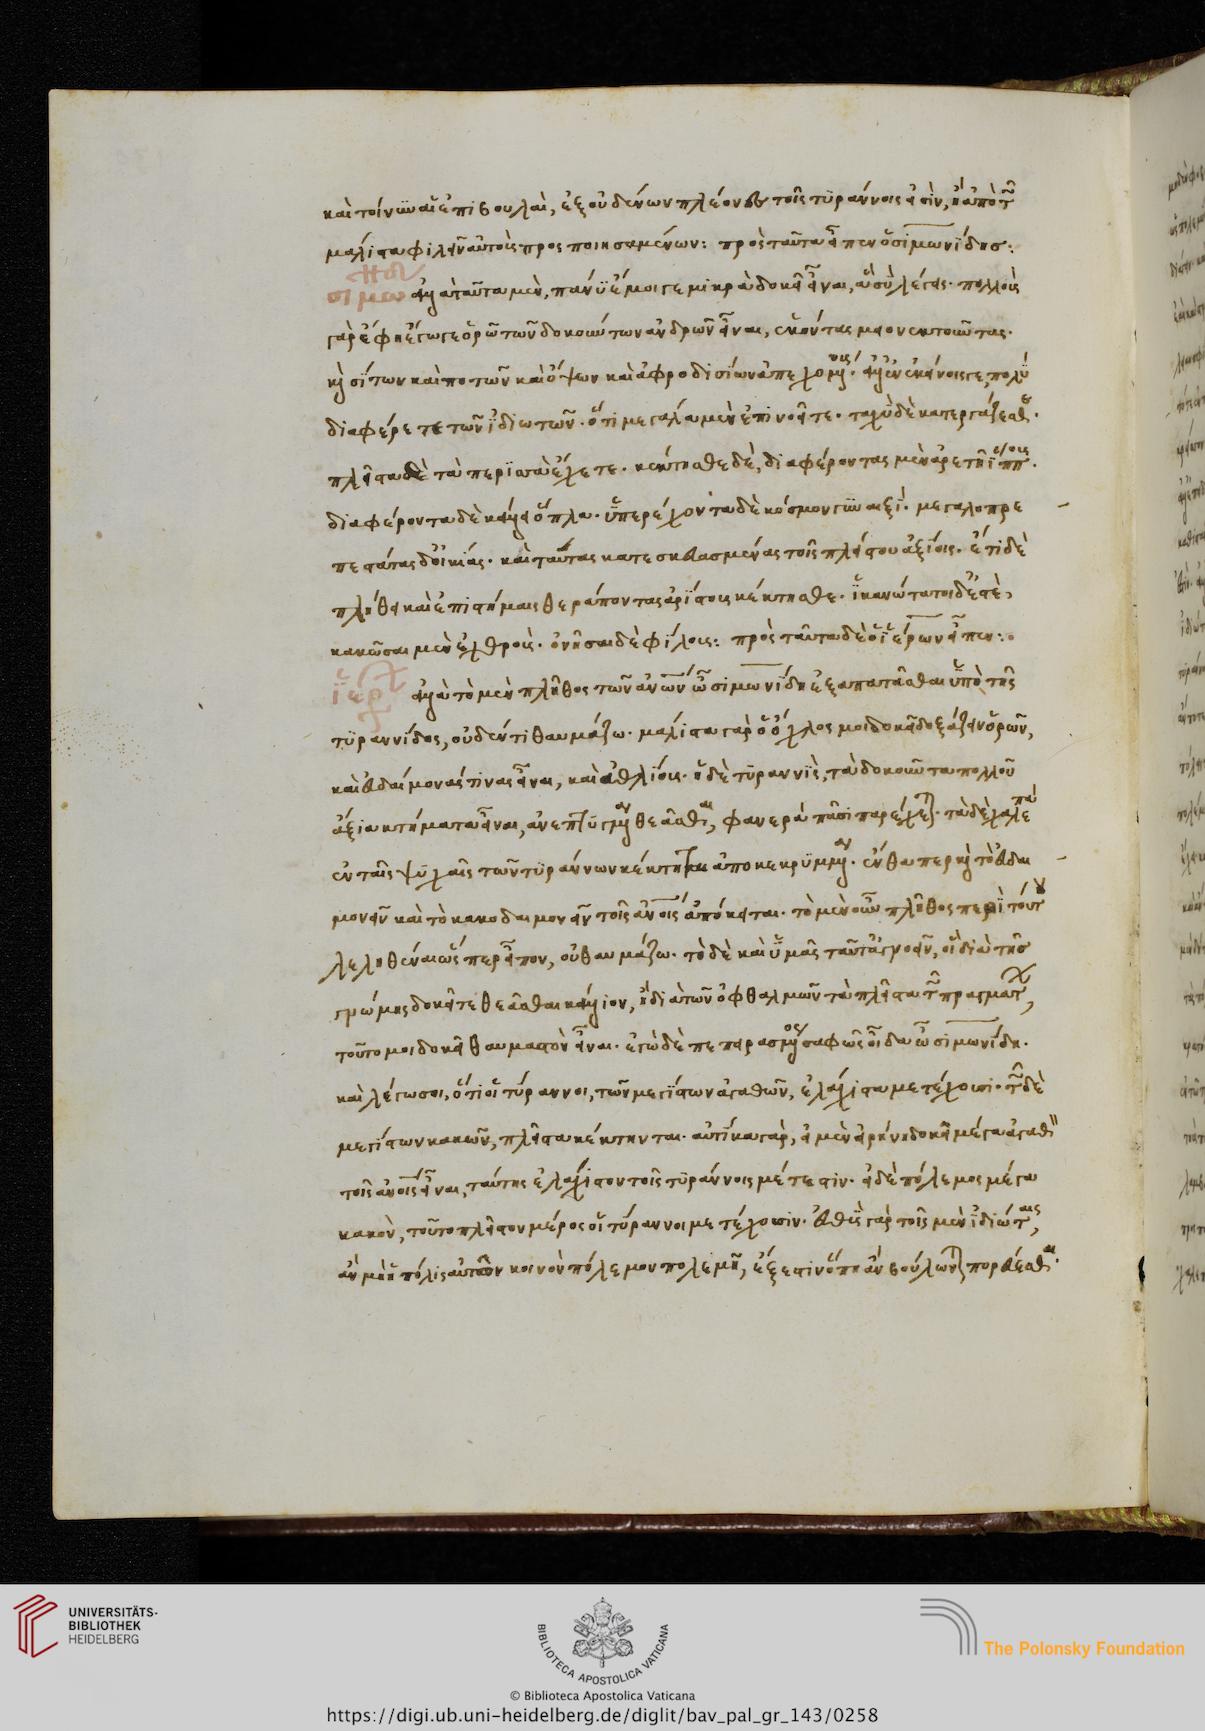 καὶ τοίνυν αἱ ἐπιβουλαὶ, ἐξ οὐδένων πλέονες τοῖς τυράννοις εἰσὶν, ἢ ἀπὸ τῶν
μάλιστα φιλεῖν αὐτοὺς προσποιησαμένων: πρὸς ταῦτα εἶπεν ὁ σιμωνίδης:
σιμων ἀλλὰ ταῦτα μὲν, πάνυ ἔμοιγε μικρὰ δοκεῖ εἶναι, ἃ σὺ λέγεις· πολλοὺς
γὰρ ἔφη ἔγωγε ὁρῶ τῶν δοκούντων ἀνδρῶν εἶναι, ἑκόντας μειονεκτοῦντας·
καὶ σίτων καὶ ποτῶν καὶ ὄψων καὶ ἀφροδισίων ἀπεχομένους· ἀλλ' ἐν ἐκείνοις γε πολὺ
διαφέρετε τῶν ἰδιωτῶν· ὅτι μεγάλα μὲν ἐπινοεῖτε· ταχὺ δὲ κατεργάζεσθε·
πλεῖστα δὲ τὰ περισσὰ ἔχετε· κέκτησθε δὲ, διαφέροντας μὲν ἀρετῆι ἵππους·
διαφέροντα δὲ κάλλει ὅπλα· ὑπερέχοντα δὲ κόσμον γυναιξί· μεγαλοπρε
πεστάτας δ' οἰκίας· καὶ ταύτας κατεσκευασμένας τοῖς πλείστου ἀξίοις· ἔτι δὲ
πλήθει καὶ ἐπιστήμαις θεράποντας ἀρίστους κέκτησθε· ἱκανώτατοι δ' ἐστὲ,
κακῶσαι μὲν ἐχθροὺς· ὀνῆσαι δὲ φίλους: πρὸς ταῦτα δὲ ὁ ἱέρων εἶπεν:
ἱερ ἀλλὰ τὸ μὲν πλῆθος τῶν ἀνων ὦ σιμωνίδη ἐξαπατᾶσθαι ὑπὸ τῆς
τυραννίδος, οὐδέν τι θαυμάζω· μάλιστα γὰρ ὁ ὄχλος μοι δοκεῖ δοξάζειν ὁρῶν,
καὶ εὐδαίμονάς τινας εἶναι, καὶ ἀθλίους· ἡ δὲ τυραννὶς, τὰ δοκοῦντα πολλοῦ
ἄξια κτήματα εἶναι, ἀνεπτυγμένα θεᾶσθαι, φανερὰ πᾶσι παρέχεται· τὰ δὲ χαλεπὰ
ἐν ταῖς ψυχαῖς τῶν τυράννων κέκτηται ἀποκεκρυμμένα· ἔνθα περ καὶ τὸ εὐδαι
μονεῖν καὶ τὸ κακοδαιμονεῖν τοῖς ἀνοις ἀπόκειται· τὸ μὲν οὖν πλῆθος περὶ τούτου
λεληθέναι ὥσπερ εἶπον, οὐ θαυμάζω· τὸ δὲ καὶ ὑμᾶς ταῦτ' ἀγνοεῖν, οἳ διὰ τῆς
γνώμης δοκεῖτε θεᾶσθαι κάλλιον, ἢ διὰ τῶν ὀφθαλμῶν τὰ πλεῖστα τῶν πραγμάτων,
τοῦτό μοι δοκεῖ θαυμαστὸν εἶναι· ἐγὼ δὲ πεπειραμένος σαφῶς οἶδα ὦ σιμωνίδη·
καὶ λέγω σοι, ὅτι οἱ τύραννοι, τῶν μεγίστων ἀγαθῶν, ἐλάχιστα μετέχουσι· τῶν δὲ
μεγίστων κακῶν, πλεῖστα κέκτηνται· αὐτίκα γὰρ, εἰ μὲν εἰρήνη δοκεῖ μέγα ἀγαθὸν
τοῖς ἀνοις εἶναι, ταύτης ἐλάχιστον τοῖς τυράννοις μέτεστιν· εἰ δὲ πόλεμος μέγα
κακὸν, τοῦτο πλεῖστον μέρος οἱ τύραννοι μετέχουσιν· εὐθὺς γὰρ τοῖς μὲν ἰδιώταις,
ἂν μὴ ἡ πόλις αὐτῶν κοινὸν πόλεμον πολεμῆι, ἔξεστιν ὅπη ἂν βούλωνται πορεύεσθαι·
UNIVERSITÄTS-
BIBLIOTHEK
HEIDELBERG
BIBLIOTECA APOSTOLICA VATICANA
The Polonsky Foundation
© Biblioteca Apostolica Vaticana
https://digi.ub.uni-heidelberg.de/diglit/bav_pal_gr_143/0258